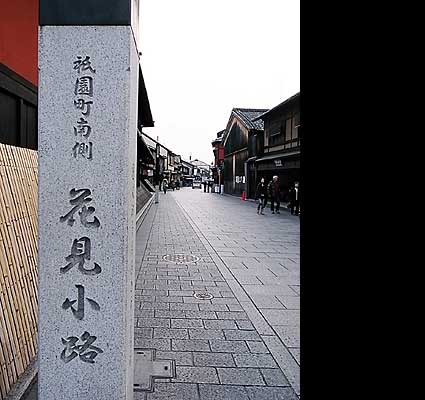 祇園町南側
花見小路